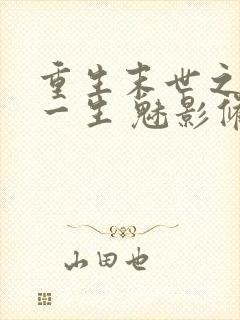 重生末世之
一生 魅影倾
山田也